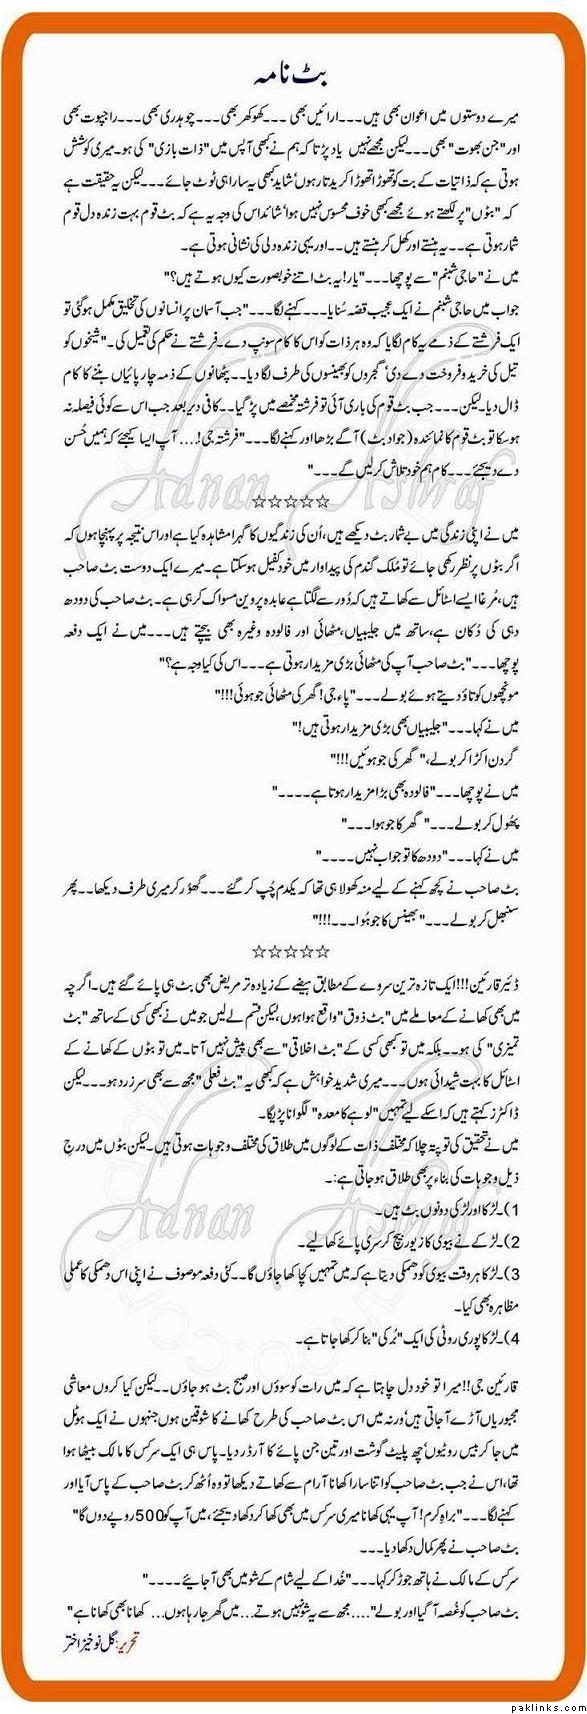 بٹ نامہ
میرے دوستوں میں اعوان بھی ہیں۔۔۔ارائیں بھی ۔۔۔کھوکھر بھی۔۔۔چوہدری بھی۔۔۔راجپوت بھی
اور"جن بھوت" بھی۔۔۔لیکن مجھے نہیں یاد پڑتا کہ ہم نے کبھی آپس میں "ذات بازی" کی ہو۔میری کوشش
ہوتی ہے کہ ذاتیات کے بت کو تھوڑا تھوڑا کریدتا رہوں' شاید کبھی یہ سارا ہی ٹوٹ جائے۔۔۔لیکن یہ حقیقت ہے
کہ "بٹوں" پر لکھتے ہوئے مجھے کبھی خوف محسوس نہیں ہوا' شائد اس کی وجہ یہ ہے کہ بٹ قوم بہت زندہ دل قوم
شمار ہوتی ہے۔۔یہ ہنستے اور کھل کر ہنستے ہیں۔۔اور یہی زندہ دلی کی نشانی ہوتی ہے۔
میں نے "حاجی شبنم" سے پوچھا۔۔۔"یار! یہ بٹ اتنے خوبصورت کیوں ہوتے ہیں؟"
جواب میں حاجی شبنم نے ایک عجیب قصہ سُنایا۔۔۔کہنے لگا۔۔۔"جب آسمان پر انسانوں کی تخلیق مکمل ہوگئی تو
ایک فرشتے کے ذمے یہ کام لگایا کہ وہ ہر ذات کو اس کا کام سونپ دے۔فرشتے نے حکم کی تعمیل کی۔"شیخوں کو
تیل کی خرید و فروخت دے دی' گجروں کو بھینسوں کی طرف لگا دیا۔۔پٹھانوں کے ذمہ چارپائیاں بننے کا کام
ڈال دیا۔لیکن۔۔۔جب بٹ قوم کی باری آئی تو فرشتہ مخمصے میں پڑ گیا۔۔کافی دیر بعد جب اس سے کوئی فیصلہ نہ
ہو سکا تو بٹ قوم کا نمائندہ (جواد بٹ) آگے بڑھا اور کہنے لگا۔۔۔"فرشتہ جی!....آپ ایسا کیجئے کہ ہمیں حُسن
دے دیجئے۔۔۔کام ہم خود تلاش کرلیں گے۔۔۔"
☆☆☆☆☆
میں نے اپنی زندگی میں بے شمار بٹ دیکھے ہیں،اُن کی زندگیوں کا گہرا مشاہدہ کیا ہے اور اس نتیجہ پر پہنچا ہوں کہ
اگر بٹوں پر نظر رکھی جائے تو مُلک گندم کی پیداوار میں خود کفیل ہو سکتا ہے۔میرے ایک دوست بٹ صاحب
ہیں،مُرغا ایسے اسٹائل سے کھاتے ہیں کہ دُور سے لگتا ہے عابدہ پروین مسواک کر رہی ہے۔ بٹ صاحب کی دودھ
دہی کی دُکان ہے،ساتھ میں جلیبیاں،مٹھائی اور فالودہ وغیرہ بھی بیچتے ہیں۔۔۔میں نے ایک دفعہ
پوچھا۔۔۔"بٹ صاحب آپ کی مٹھائی بڑی مزیدار ہوتی ہے۔۔۔اس کی کیا وجہ ہے؟"
مونچھوں کو تاؤ دیتے ہوئے بولے۔۔۔"پاء جی! گھر کی مٹھائی جو ہوئی!!!"
میں نے کہا۔۔۔"جلیبیاں بھی بڑی مزیدار ہوتی ہیں!"
گردن اکڑا کر بولے،" گھر کی جو ہوئیں!!!"
میں نے پوچھا۔۔۔"فالودہ بھی بڑا مزیدار ہوتا ہے۔۔۔۔"
پھُول کر بولے۔۔۔"گھر کا جو ہوا۔۔۔"
میں نے کہا۔۔۔"دودھ کا تو جواب نہیں۔۔۔۔"
بٹ صاحب نے کچھ کہنے کے لیے منہ کھولا ہی تھا کہ یکدم چُپ کر گئے۔۔۔گھوُر کر میری طرف دیکھا۔۔پھر
سنبھل کر بولے۔۔۔"بھینس کا جو ہُوا۔۔۔!!!"
☆☆☆☆☆
ڈئیر قارئین!!!ایک تازہ ترین سروے کے مطابق ہیضے کے زیادہ تر مریض بھی بٹ ہی پائے گئے ہیں۔اگرچہ
میں بھی کھانے کے معاملے میں "بٹ ذوق" واقع ہوا ہوں،لیکن قسم لے لیں جو میں نے کبھی کسی کے ساتھ "بٹ
تمیزی" کی ہو۔۔بلکہ میں تو کبھی کسی کے "بٹ اخلاقی" سے بھی پیش نہیں آتا۔میں تو بٹوں کے کھانے کے
اسٹائل کا بہت شیدائی ہوں۔۔۔میری شدید خواہش ہے کہ کبھی یہ "بٹ فعلی" مجھ سے بھی سرزرد ہو۔۔۔لیکن
ڈاکٹرز کہتے ہیں کہ اسکے لیے تمہیں "لوہے کا معدہ" لگوانا پڑیگا۔
میں نے تحقیق کی تو پتہ چلا کہ مختلف ذات کے لوگوں میں طلاق کی مختلف وجوہات ہوتی ہیں۔لیکن بٹوں میں درج
ذیل وجوہات کی بناء پر بھی طلاق ہو جاتی ہے:۔
1)۔لڑکا اور لڑکی دونوں بٹ ہیں۔
2)۔لڑکے نے بیوی کا زیور بیچ کر سری پائے کھا لیے۔
3)۔لڑکا ہر وقت بیوی کو دھمکی دیتا ہے کہ میں تمہیں کچا کھا جاؤں گا۔۔کئی دفعہ موصوف نے اپنی اس دھمکی کا عملی
مظاہرہ بھی کیا۔
4)۔لڑکا پوری روٹی کی ایک "بُرکی" بنا کر کھا جاتا ہے۔
قارئین جی!!میرا تو خود دل چاہتا ہے کہ میں رات کو سوؤں اور صبح بٹ ہو جاؤں۔۔۔لیکن کیا کروں معاشی
مجبوریاں آڑے آجاتی ہیں' ورنہ میں اس بٹ صاحب کی طرح کھانے کا شوقین ہوں جنہوں نے ایک ہوٹل
میں جا کر بیس روٹیوں' چھ پلیٹ گوشت اور تین جن پائے کا آرڈر دیا۔پاس ہی ایک سرکس کا مالک بیٹھا ہوا
تھا،اس نے جب بٹ صاحب کو اتنا سارا کھانا آرام سے کھاتے دیکھا تو وہ اُٹھ کر بٹ صاحب کے پاس آیا اور
کہنے لگا۔۔۔"براہِ کرم! آپ یہی کھانا میری سرکس میں بھی کھا کر دکھا دیجئے،میں آپ کو500روپے دوں گا"
بٹ صاحب نے پھر کمال دکھا دیا۔۔۔
سرکس کے مالک نے ہاتھ جوڑ کر کہا۔۔۔"خُدا کے لیے شام کے شو میں بھی آجائیے۔۔۔۔"
بٹ صاحب کو غُصہ آگیا اور بولے"....مجھ سے یہ شو نہیں ہوتے...میں گھر جا رہا ہوں...کھانا بھی کھانا ہے"
تحریر: گل نوخیز اختر
Adnan Ashraf
Adnan Ashraf
paklinks.com